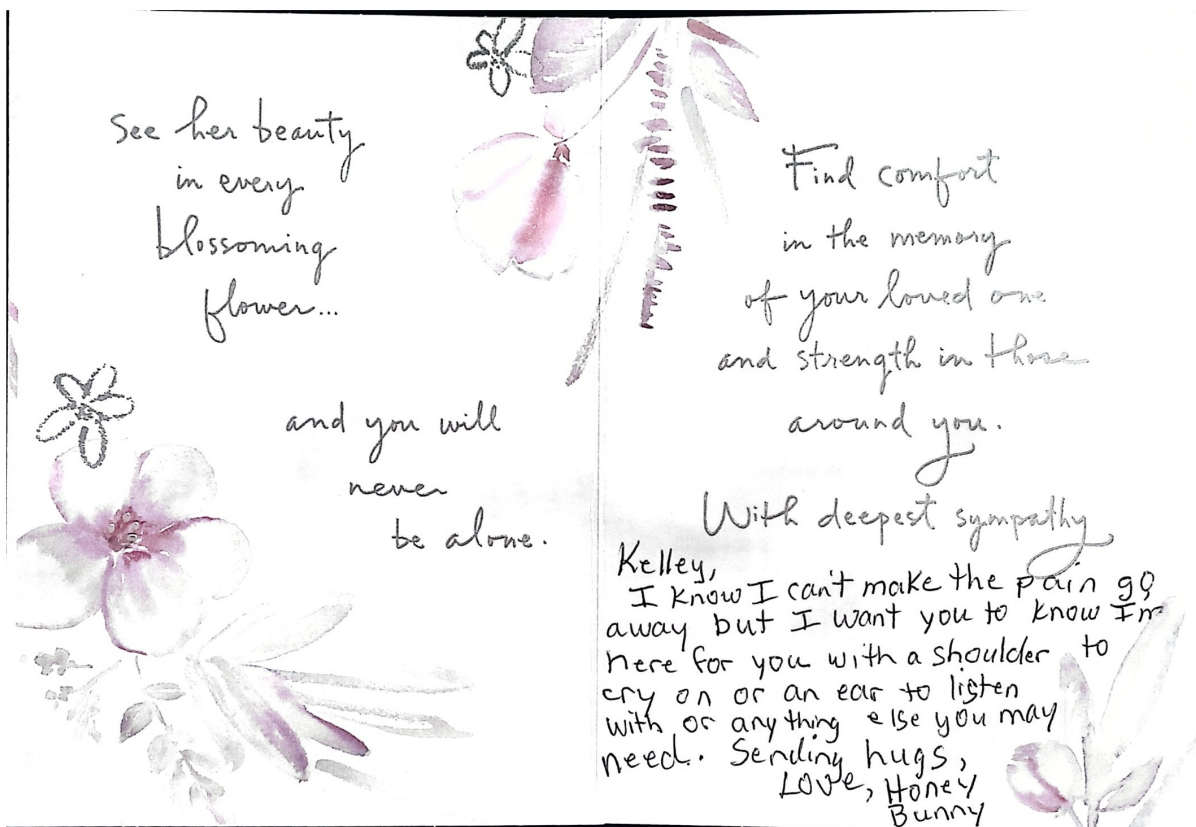 See her beauty
in every
blossoming
flower...
and you will
never
be alone.
Find comfort
in the memory
of your loved one
and strength in those
around you.
With deepest sympathy
Kelley,
I know I can't make the pain go
away but I want you to know Im
here for you with a shoulder to
cry on or an ear to listen
with or anything else you may
need. Sending hugs,
Love, Honey
Bunny